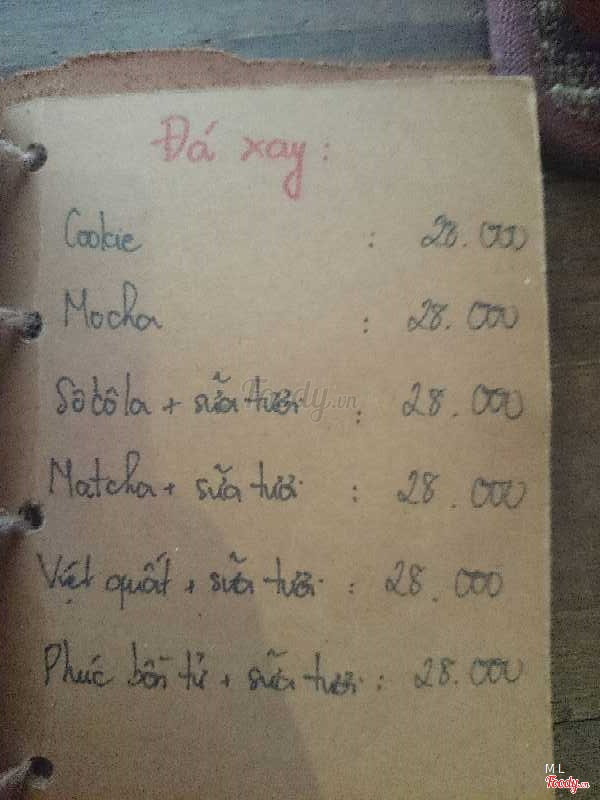 Đá xay:
Cookie : 28.000
Mocha : 28.000
Sôcôla + sữa tươi : 28.000
Matcha + sữa tươi : 28.000
Việt quất + sữa tươi : 28.000
Phúc bồn tử + sữa tươi : 28.000
Foody.vn
M L
Foody.vn